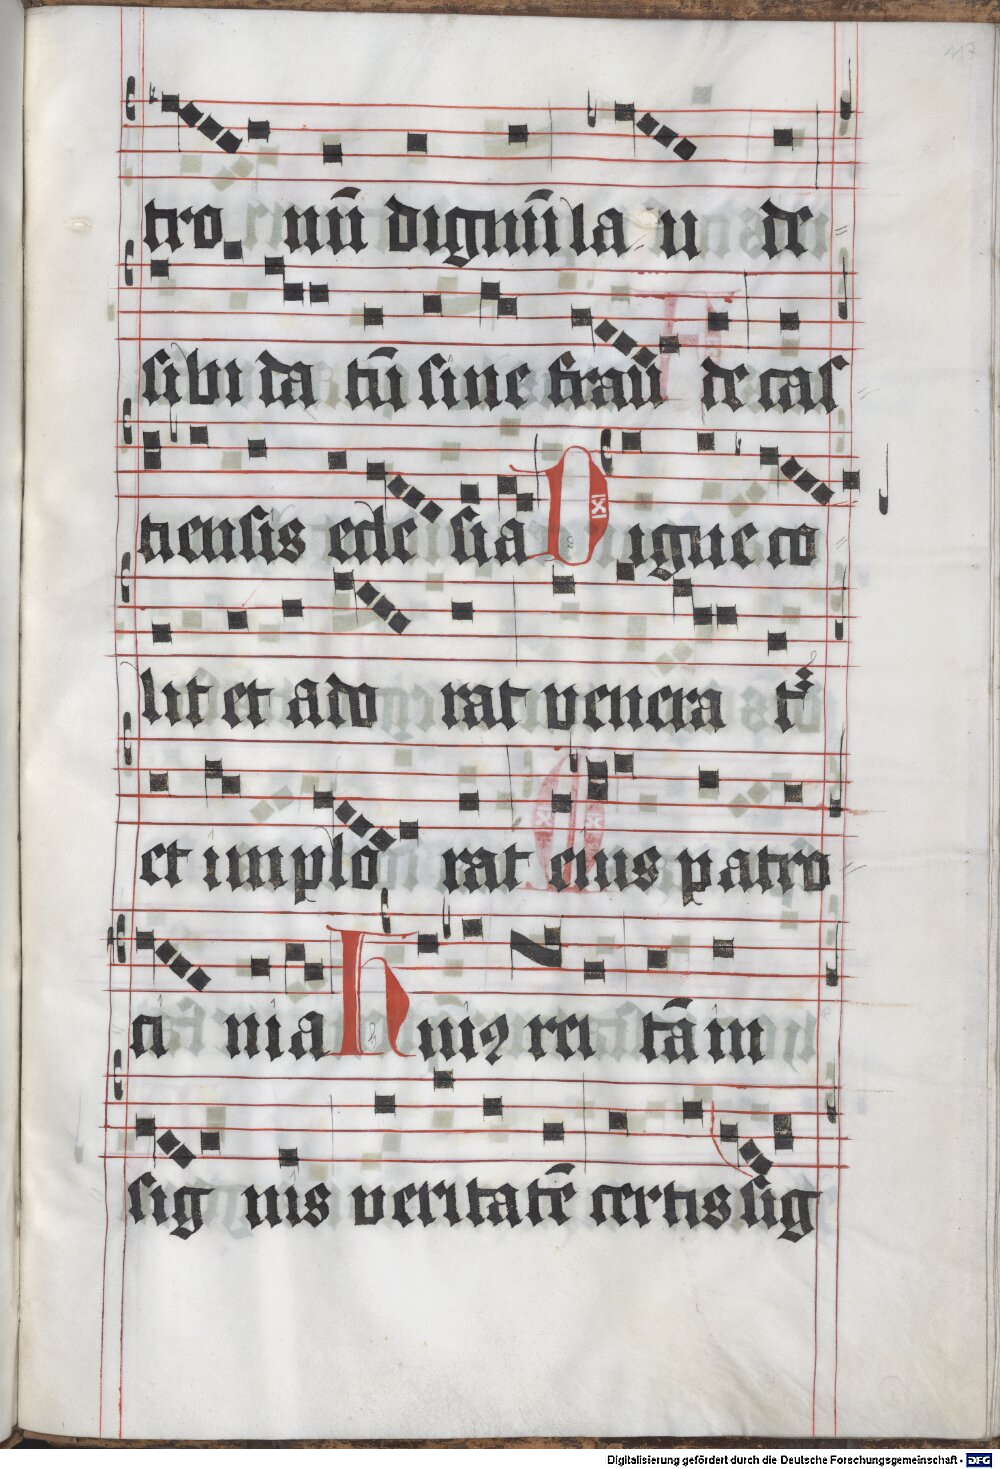 117
tro nū dignū lau de
sibi da tū sine frau de cas
tiensis eccle sia Digne co
lit et ado rat venera tᷣ
et implo rat eius patro
ci nia Huiꝰ rei tā in
sig nis veritatē certis sig
Digitalisierung gefördert durch die Deutsche Forschungsgemeinschaft - DFG